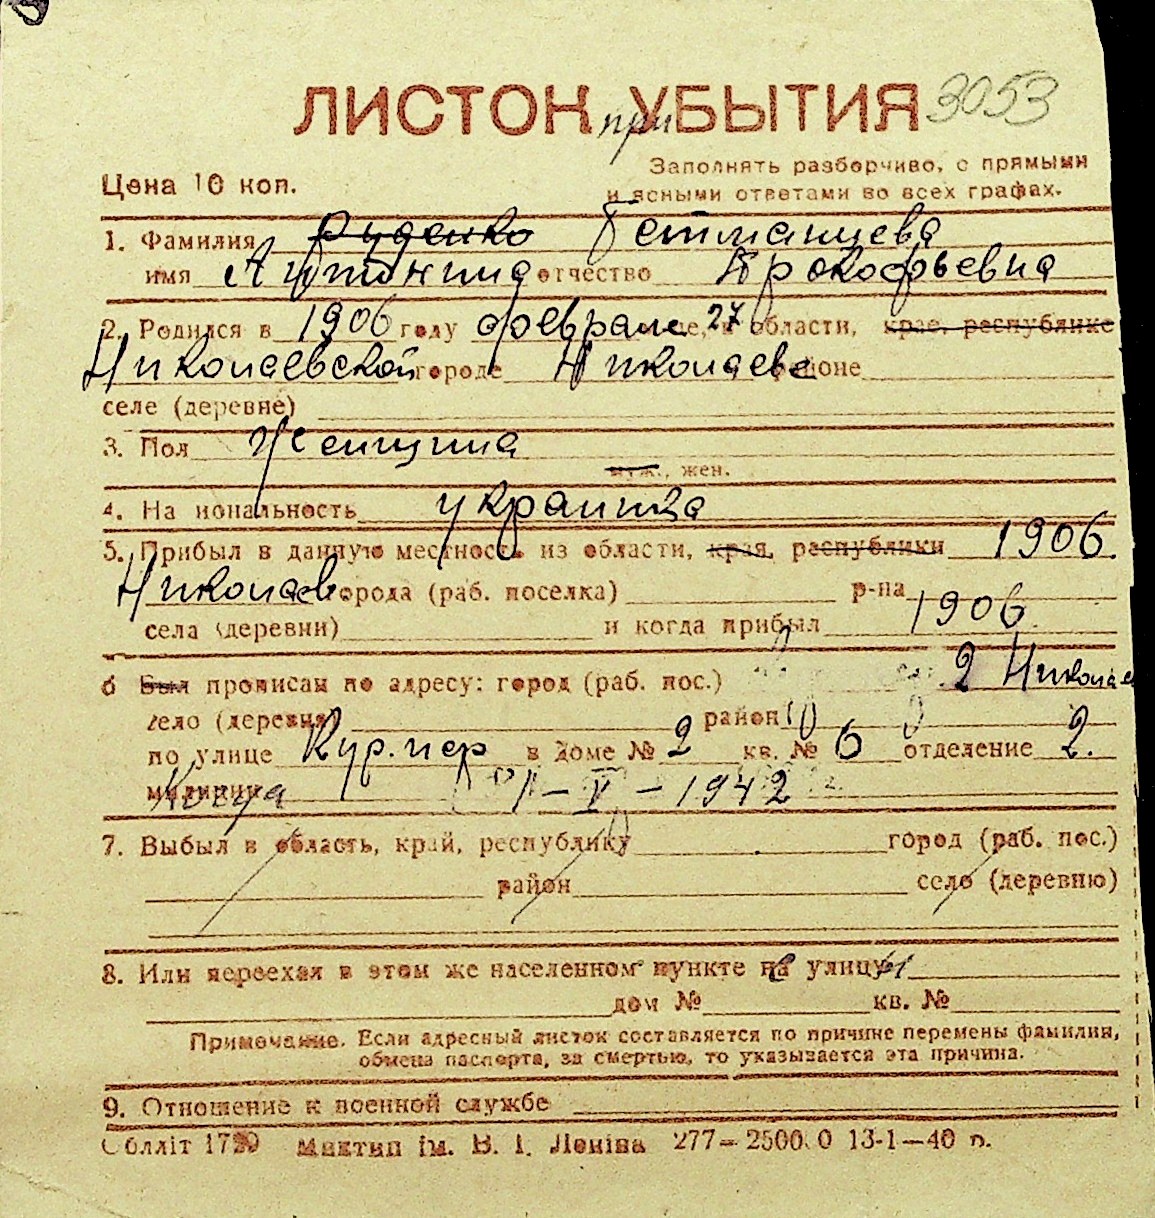 ЛИСТОК при УБЫТИЯ 3053
Цена 10 коп.
Заполнять разборчиво, с прямыми
и ясными ответами во всех графах.
1. Фамилия Руденко Гетманцева
имя Антонина отчество Прокофьевна
2. Родился в 1906 году феврале 27 области, крае, республике
Николаевской городе Николаеве районе
селе (деревне)
3. Пол Женщина
муж., жен.
4. Национальность украинка
5. Прибыл в данную местность из области, края, республики 1906.
Николаев города (раб. поселка) р-на
села (деревни) и когда прибыл 1906.
6 Был прописан по адресу: город (раб. пос.) г. Николаев
село (деревня) район
по улице Кур. пер в доме № 2 кв. № 6 отделение 2.
милиции Когда 1-V-1942
7. Выбыл в область, край, республику город (раб. пос.)
район село (деревню)
8. Или переехал в этом же населенном пункте на улицу
дом № кв. №
Примечание. Если адресный листок составляется по причине перемены фамилии,
обмена паспорта, за смертью, то указывается эта причина.
9. Отношение к военной службе
Облліт 1720 Миктип ім. В. І. Леніна 277—25000 13-1—40 р.